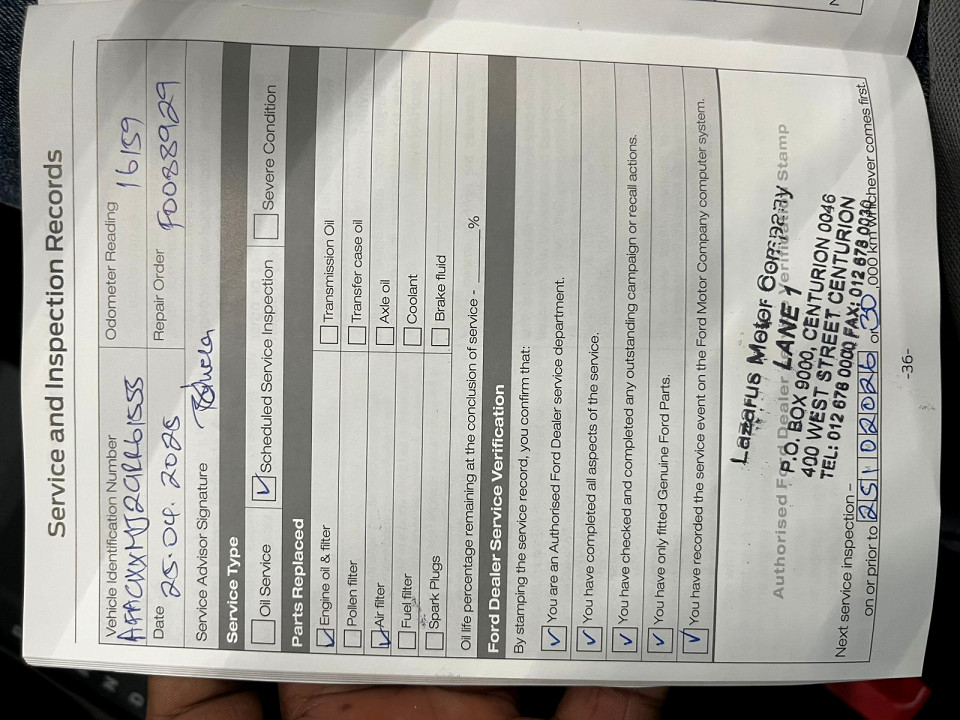 Service and Inspection Records
Vehicle Identification Number
Odometer Reading 16159
Date 25.04.2025
Repair Order F0088929
Service Advisor Signature
Service Type
Oil Service
Scheduled Service Inspection
Severe Condition
Parts Replaced
Engine oil & filter
Transmission Oil
Pollen filter
Transfer case oil
Air filter
Axle oil
Fuel filter
Coolant
Spark Plugs
Brake fluid
Oil life percentage remaining at the conclusion of service - %
Ford Dealer Service Verification
By stamping the service record, you confirm that:
You are an Authorised Ford Dealer service department.
You have completed all aspects of the service.
You have checked and completed any outstanding campaign or recall actions.
You have only fitted Genuine Ford Parts.
You have recorded the service event on the Ford Motor Company computer system.
Lazarus Motor Company
LANE 1
Authorised Ford Dealer Verification Stamp
P.O. BOX 9000, CENTURION 0046
400 WEST STREET CENTURION
TEL: 012 678 0000 FAX: 012 678 0030
Next service inspection –
on or prior to or 30,000 km whichever comes first.
-36-